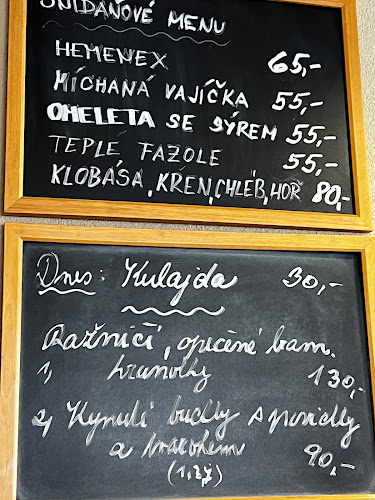 SNÍDAŇOVÉ MENU
HEMENEX 65,-
MÍCHANÁ VAJÍČKA 55,-
OMELETA SE SÝREM 55,-
TEPLÉ FAZOLE 55,-
KLOBÁSA, KŘEN, CHLÉB, HOŘ 80,-
Dnes: Kulajda 30,-
Ražničí, opečené bram.
1) hranolky 130,-
2) Kynuté buchty s povidly
a tvarohem 90,-
(1,3,7)